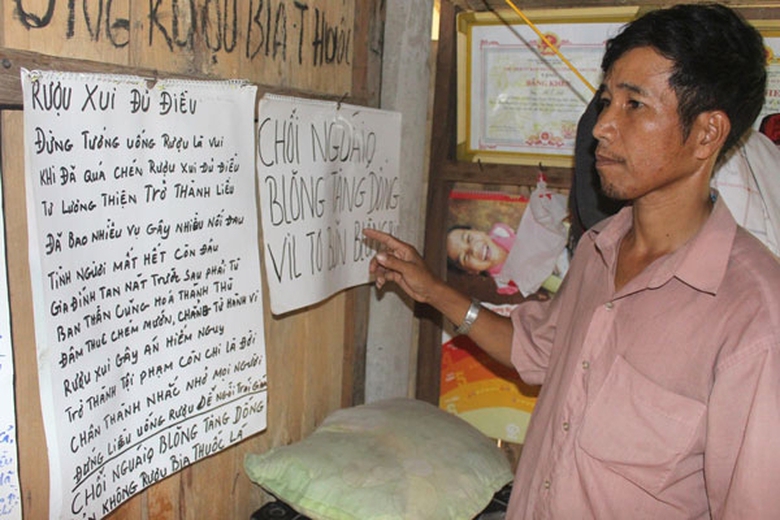 ỐNG RƯỢU BIA THUỐC
RƯỢU XUI ĐỦ ĐIỀU
ĐỪNG TƯỞNG UỐNG RƯỢU LÀ VUI
KHI ĐÃ QUÁ CHÉN RƯỢU XUI ĐỦ ĐIỀU
TỪ LƯƠNG THIỆN TRỞ THÀNH LIỀU
ĐÃ BAO NHIÊU VỤ GÂY NHIỀU NỔI ĐAU
TÌNH NGƯỜI MẤT HẾT CÒN ĐÂU
GIA ĐÌNH TAN NÁT TRƯỚC SAU PHẢI TÙ
BẢN THÂN CŨNG HOÁ THÀNH THÙ
ĐÂM THUÊ CHÉM MƯỚN, CHẲNG TỪ HÀNH VI
RƯỢU XUI GÂY ÁN HIỂM NGUY
TRỞ THÀNH TỘI PHẠM CÒN CHI LÀ ĐỜI
CHÂN THÀNH NHẮC NHỞ MỌI NGƯỜI
ĐỪNG LIỀU UỐNG RƯỢU ĐỂ NGỒI TRẠI GIAM
CHỐI NGUÁIQ BLŎNG TĂNG DŎNG
KHÔNG RƯỢU BIA THUỐC LÁ
CHỐI NGUÁIQ
BLŎNG TĂNG DŎNG
VIL TO
BẰNG KHEN